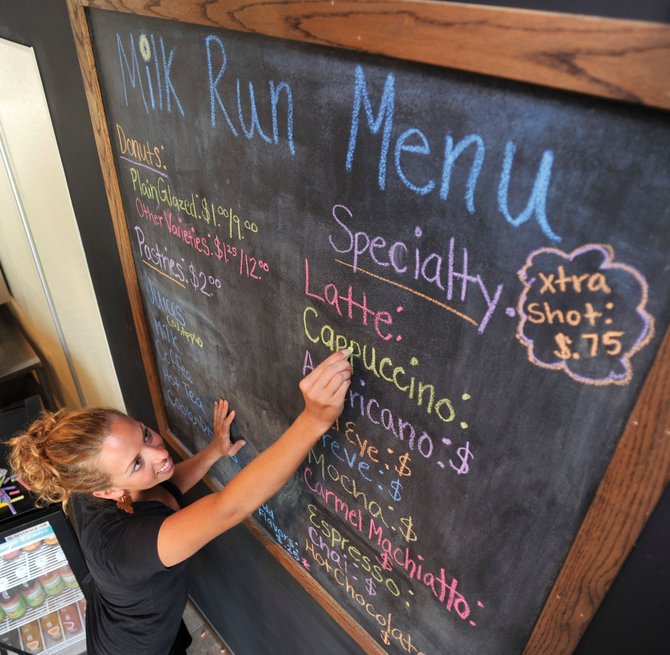 Milk Run Menu
Donuts:
Plain Glazed: $1.00/9.00
Other Varieties: $1.25/12.00
Pastries: $2.00
Milk
Coffee
Specialty
Latte:
Cappuccino:
Americano: $
Eye: $
Breve: $
Mocha: $
Carmel Machiatto:
Espresso: $
Chai: $
Hot Chocolate:
xtra
Shot:
$.75